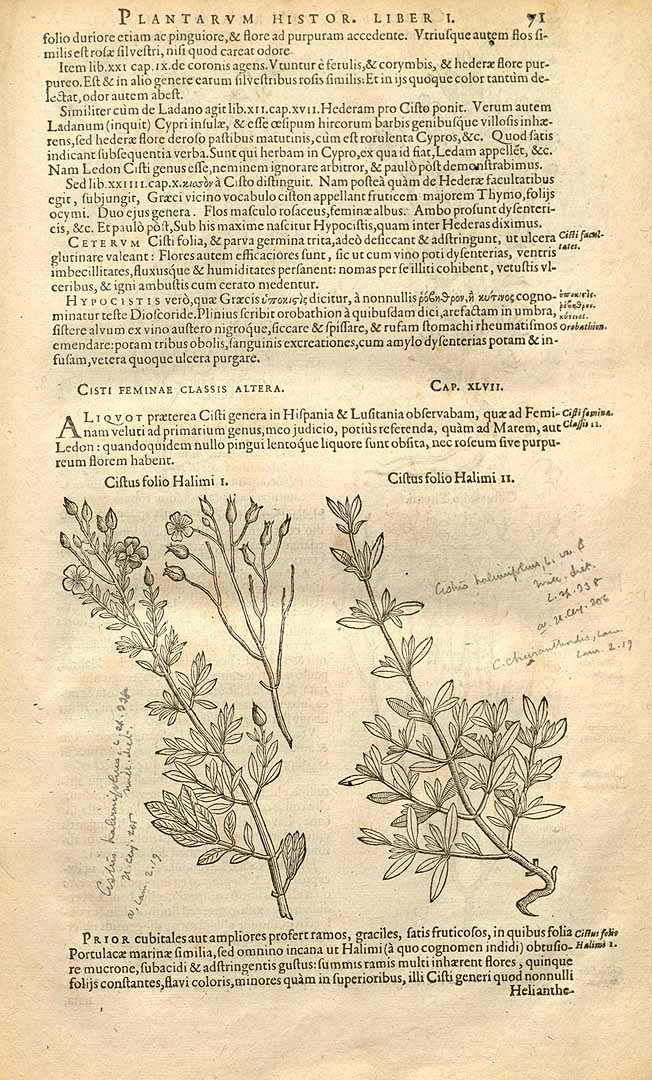 PLANTARVM HISTOR. LIBER I. 71
folio duriore etiam ac pinguiore, & flore ad purpuram accedente. Vtriusque autem flos si-
milis est rosæ silvestri, nisi quod careat odore.
Item lib. xxi cap. ix. de coronis agens. Vtuntur è ferulis, & corymbis, & hederæ flore pur-
pureo. Est & in alio genere earum silvestribus rosis similis: Et in ijs quoque color tantùm de-
lectat, odor autem abest.
Similiter cùm de Ladano agit lib. XII. cap. XVII. Hederam pro Cisto ponit. Verum autem
Ladanum (inquit) Cypri insulæ, & esse œsipum hircorum barbis genibusque villosis inhæ-
rens, sed hederæ flore deroso pastibus matutinis, cùm est rorulenta Cypros, &c. Quod satis
indicant subsequentia verba. Sunt qui herbam in Cypro, ex qua id fiat, Ledam appellẽt, &c.
Nam Ledon Cisti genus esse, neminem ignorare arbitror, & paulò pòst demonstrabimus.
Sed lib. XXIIII. cap. X. κισσὸν à Cisto distinguit. Nam posteà quàm de Hederæ facultatibus
egit, subjungit, Græci vicino vocabulo ciston appellant fruticem majorem Thymo, folijs
ocymi. Duo ejus genera. Flos masculo rosaceus, feminæ albus. Ambo prosunt dysenteri-
cis, &c. Et paulò pòst, Sub his maxime nascitur Hypocistis, quam inter Hederas diximus.
CETERVM Cisti folia, & parva germina trita, adeò desiccant & adstringunt, ut ulcera
Cisti facul-
tates.
glutinare valeant: Flores autem efficaciores sunt, sic ut cum vino poti dysenterias, ventris
imbecillitates, fluxusque & humiditates persanent: nomas per se illiti cohibent, vetustis vl-
ceribus, & igni ambustis cum cerato medentur.
HYPOCISTIS verò, quæ Græcis ὑποκισὶς dicitur, à nonnullis ῥόβηθρον, ἢ κύτινος cogno-
ὑποκισὶς.
ῥόβηθρον.
κύτινος.
minatur teste Dioscoride. Plinius scribit orobathion à quibusdam dici, arefactam in umbra,
sistere alvum ex vino austero nigroque, siccare & spissare, & rufam stomachi rheumatismos
Orobathion.
emendare: potam tribus obolis, sanguinis excreationes, cum amylo dysenterias potam & in-
fusam, vetera quoque ulcera purgare.
CISTI FEMINAE CLASSIS ALTERA. CAP. XLVII.
ALIQVOT præterea Cisti genera in Hispania & Lusitania observabam, quæ ad Femi-
Cisti femina.
Classis 11.
nam veluti ad primarium genus, meo judicio, potiùs referenda, quàm ad Marem, aut
Ledon: quandoquidem nullo pingui lentoque liquore sunt obsita, nec roseum sive purpu-
reum florem habent.
Cistus folio Halimi I.
Cistus folio Halimi II.
Cistus halimifolius, L. var. β
mill. dict.
L. sp. 738
C. Cheiranthoides, Lam.
Lam. 2. 19
Cistus halimifolius, L. sp. 738
mill. dict.
Lam. 2. 19
PRIOR cubitales aut ampliores profert ramos, graciles, satis fruticosos, in quibus folia
Cistus folio
Halimi 1.
Portulacæ marinæ similia, sed omnino incana ut Halimi (à quo cognomen indidi) obtusio-
re mucrone, subacidi & adstringentis gustus: summis ramis multi inhærent flores, quinque
folijs constantes, flavi coloris, minores quàm in superioribus, illi Cisti generi quod nonnulli
Helianthe-